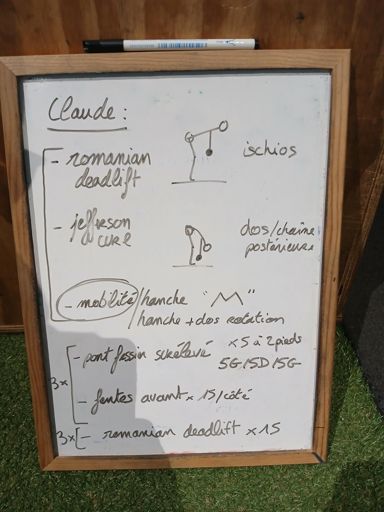 Claude :
- romanian deadlift ischios
- jefferson curl dos/chaîne postérieure
- mobilité/hanche "M"
/hanche + dos rotation
3x - pont fessier surélevé x 5 à 2 pieds
5G 15D 15G
- fentes avant x 15/côté
3x - romanian deadlift x 15